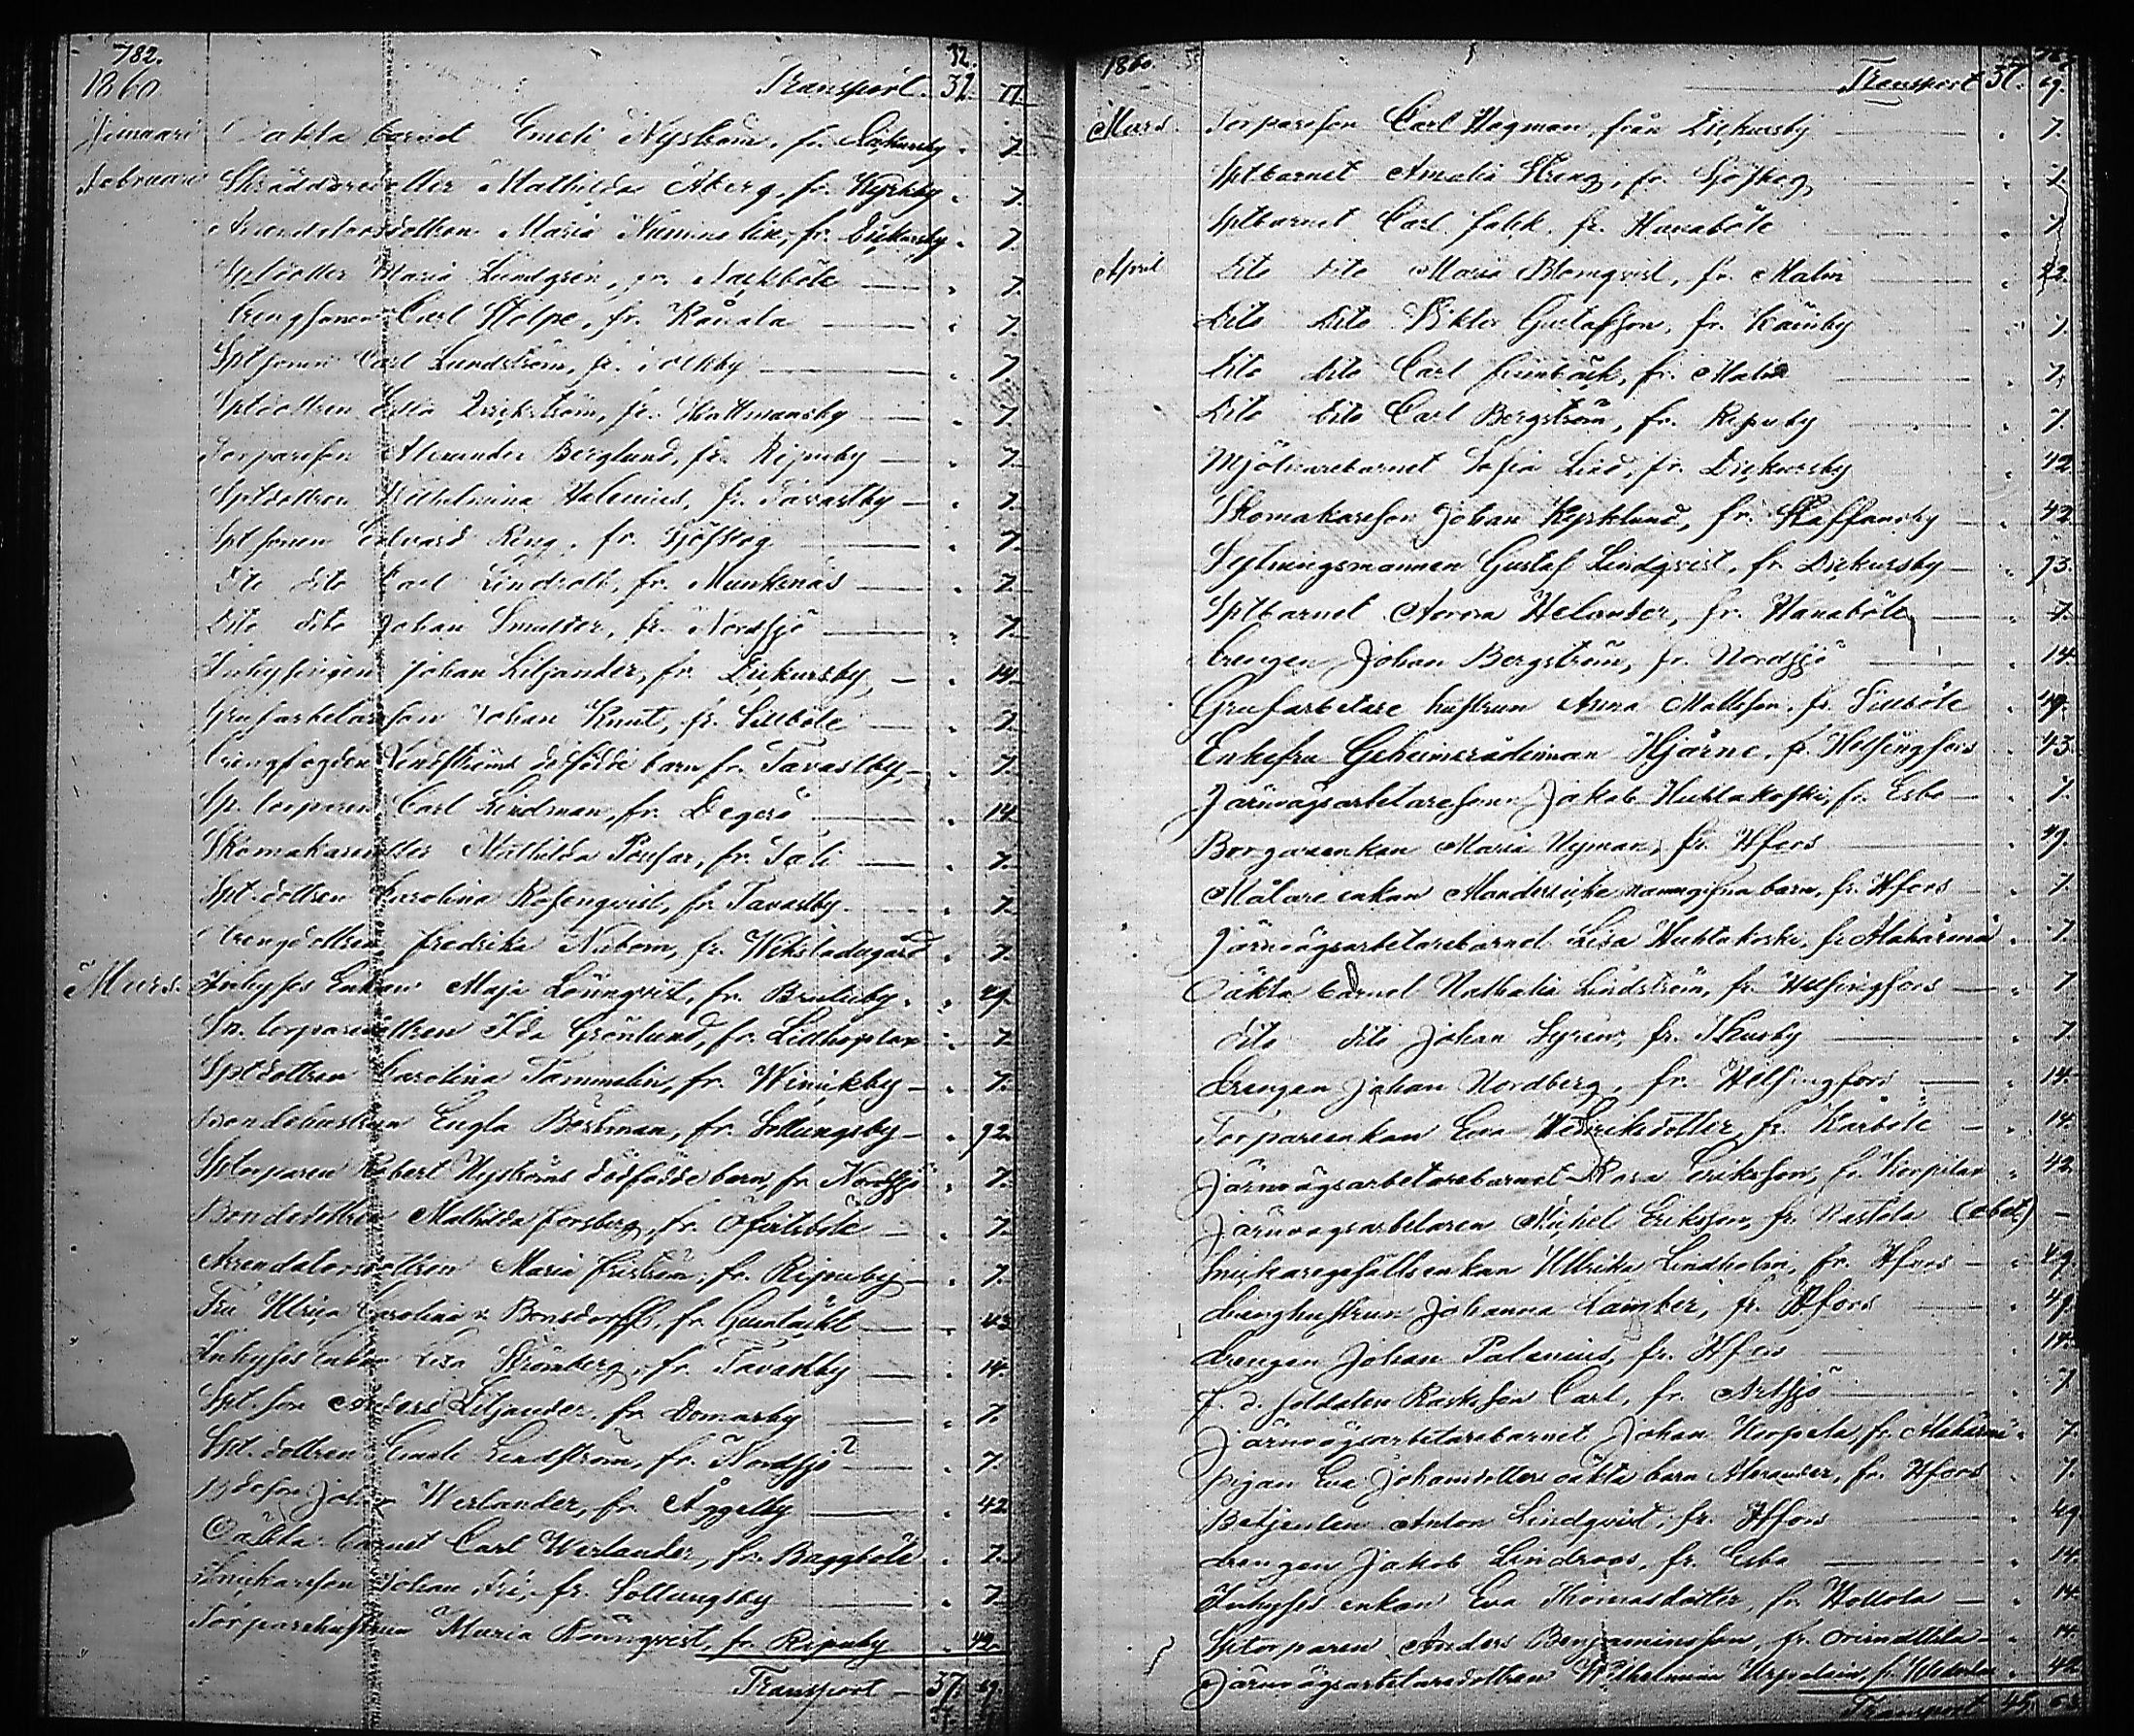 782. 32.
1860 Transport 32. 11
Januari Oäkta barnet Emeli Nyström, fr. Dickursby 7.
Februari Skräddaredotter Mathilda Åberg, fr. Kyrkby 7.
Arendatorsdottren Maria Numelin, fr. Dickursby 7.
Sptdotter Maria Lundgren, fr. Nackböle 7.
Drengsonen Carl Stolpe, fr. Rånala 7.
Sptsonen Carl Lundström, fr. Tolkby 7
Sptdottren Edla Qvickström, fr. Hattmansby 7.
Torpareson Alexander Berglund, fr. Ripuby 7.
Sptdottren Wilhelmina Helenius, fr. Tavastby 7.
Sptsonen Edvard Reng, fr. Sjöskog 7.
Dito dito Carl Lindroth, fr. Munksnäs 7.
Dito dito Johan Smulter, fr. Nordsjö 7.
Inhysingen Johan Liljander, fr. Dickursby 14.
Grufarbetareson Johan Knut, fr. Sillböle 7.
Drengfogden Lindströms dödfödde barn fr. Tavastby 7.
Sp. torparen Carl Lindman, fr. Degerö 14.
Skomakaredotter Mathilda Pousar, fr. Tali 7.
Spt. dottren Karolina Rosenqvist, fr. Tavastby. 7.
Drengdottren Fredrika Nubom, fr. Wiksladugård 7.
Mars. Inhyses Enkan Maja Lönnqvist, fr. Brutuby. 49.
Sn. torparedottren Ida Grönlund, fr. Lillhoplax 7
Sptdottren Carolina Tammelin, fr. Winickby 7.
Bondehustrun Engla Böckman, fr. Sottungsby 92.
Sptorparen Robert Nyströms dödfödde barn, fr. Nordsjö 7.
Bondedottren Mathilda Forsberg, fr. Öfvitsböle 7.
Arrendatorsdottren Maria Friström, fr. Ripuby 7.
Fru Ulrica Carolina v. Bonsdorff, fr. Gumtäckt 43
Inhyses Enkan Lisa Strömberg, fr. Tavastby 14.
Spt. son Anders Liljander, fr. Domarby 7.
Spt. dottren Emeli Lindström, fr. Nordsjö 7.
Johan Werlander, fr. Åggelby 42
Oäkta barnet Carl Werlander, fr. Baggböle 7.
Snickareson Johan Fri, fr. Sottungsby 7
Torparehustrun Maria Rönnqvist, fr. Ripuby 49.
Transport 37. 69.
1860 Transport 37. 69.
Mars. Torpareson Carl Hagman, från Dickursby 7.
Sptbarnet Amalia Streng, fr. Sjöskog 7.
Sptbarnet Carl Falck, fr. Hanaböle 7
April Dito dito Maria Blomqvist, fr. Malm 42.
Dito dito Viktor Gustafsson, fr. Kånby 7
Dito dito Carl Grönbäck, fr. Malm 7.
Dito dito Carl Bergström, fr. Ripuby 7.
Mjölnarebarnet Sofia Lind, fr. Dickursby 42
Skomakareson Johan Kyrklund, fr. Staffansby 42
Sytningsmannen Gustaf Lindqvist, fr. Dickursby 93.
Sptbarnet Anna Helander, fr. Hanaböle 7.
Drengen Johan Bergström, fr. Nordsjö 14.
Grufarbetare hustrun Anna Mattsson, fr. Sillböle 49.
Enkefru Geheimerådinnan Hjärne, fr. Helsingfors 43.
Järnvägsarbetaresonen Jakob Huhtakoski, fr. Esbo 7.
Borgareenkan Maria Nyman, fr. Hfors 49.
Målare enkan Mandersicka namngifna barn, fr. Hfors 7
Järnvägsarbetarebarnet Lisa Huhtakoski, fr. Alahärmä 7.
Oäkta barnet Nathalia Lindström, fr. Helsingfors 7
dito dito Johan Syren, fr. Thusby 7
Drengen Johan Nordberg, fr. Helsingfors 14.
Torpareenkan Eva Henriksdotter, fr. Kårböle 14.
Järnvägsarbetarebarnet Rosa Eriksson, fr. Korpilax 42
Järnvägsarbetaren Michel Eriksson, fr. Nastola (obet)
Snickaregesällsenkan Ullrika Lindholm, fr. Hfors 49.
Drenghustrun Johanna Kamker, fr. Hfors 49.
Drengen Johan Palenius, fr. Hfors 14.
F. d. soldaten Rasks son Carl, fr. Artsjö 7
Järnvägsarbetarebarnet Johan Korpela, fr. Alahärmä 7.
Pigan Eva Johansdotters oäkta barn Alexander, fr. Hfors 7.
Betjenten Anton Lindqvist, fr. Hfors 49
Drengen Jakob Lindroos, fr. Esbo 14.
Inhyses enkan Eva Thomasdotter, fr. Hollola 14.
Sptorparen Anders Benjaminsson, fr. Orimattila 14.
Järnvägsarbetaredottren Wilhelmina 42
Transport 45. 63.